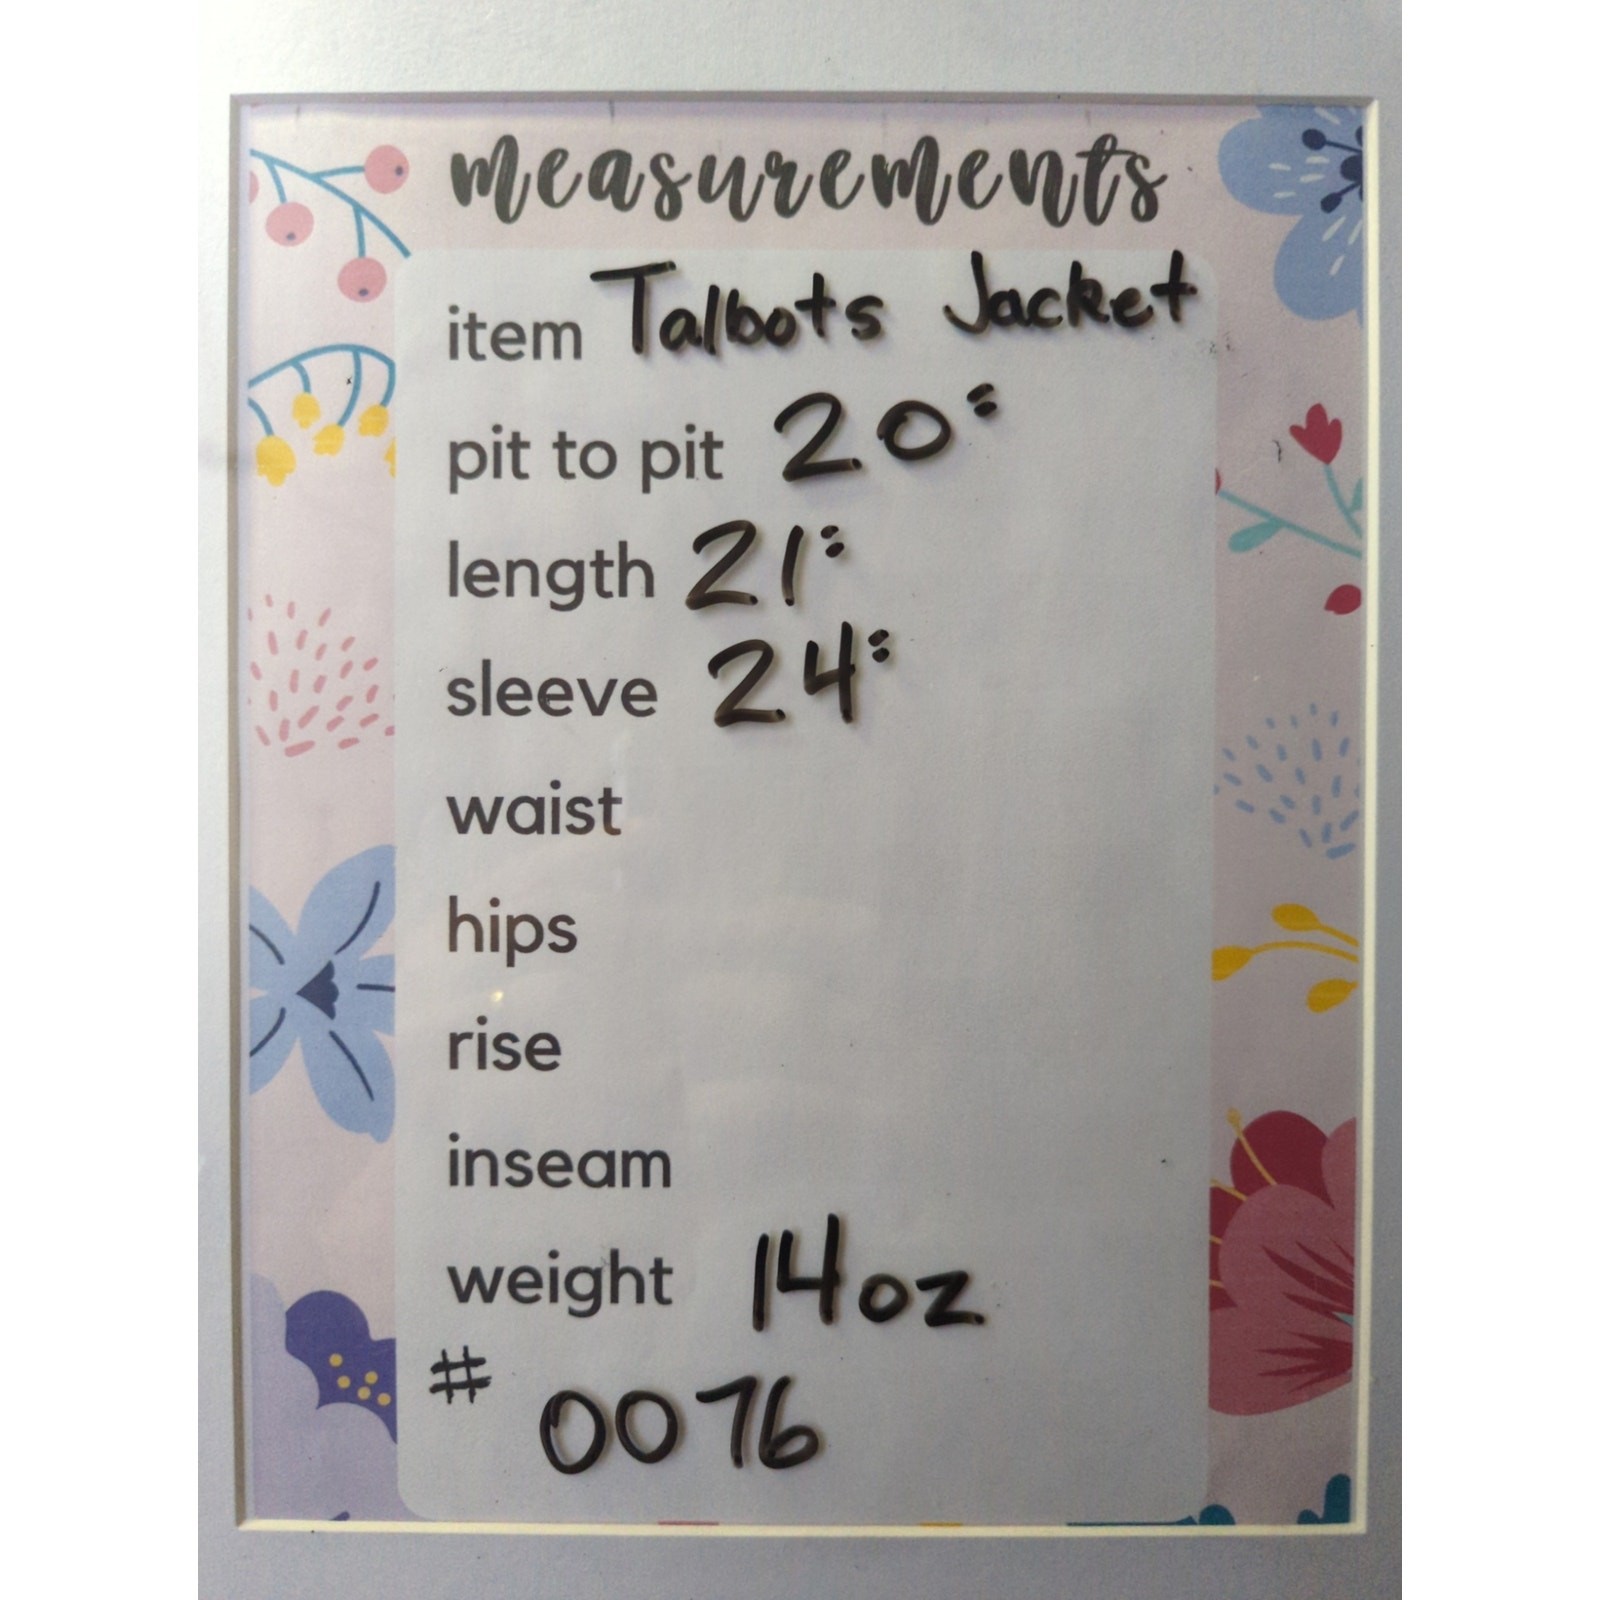 measurements
item Talbots Jacket
pit to pit 20"
length 21"
sleeve 24"
waist
hips
rise
inseam
weight 14oz
# 0076